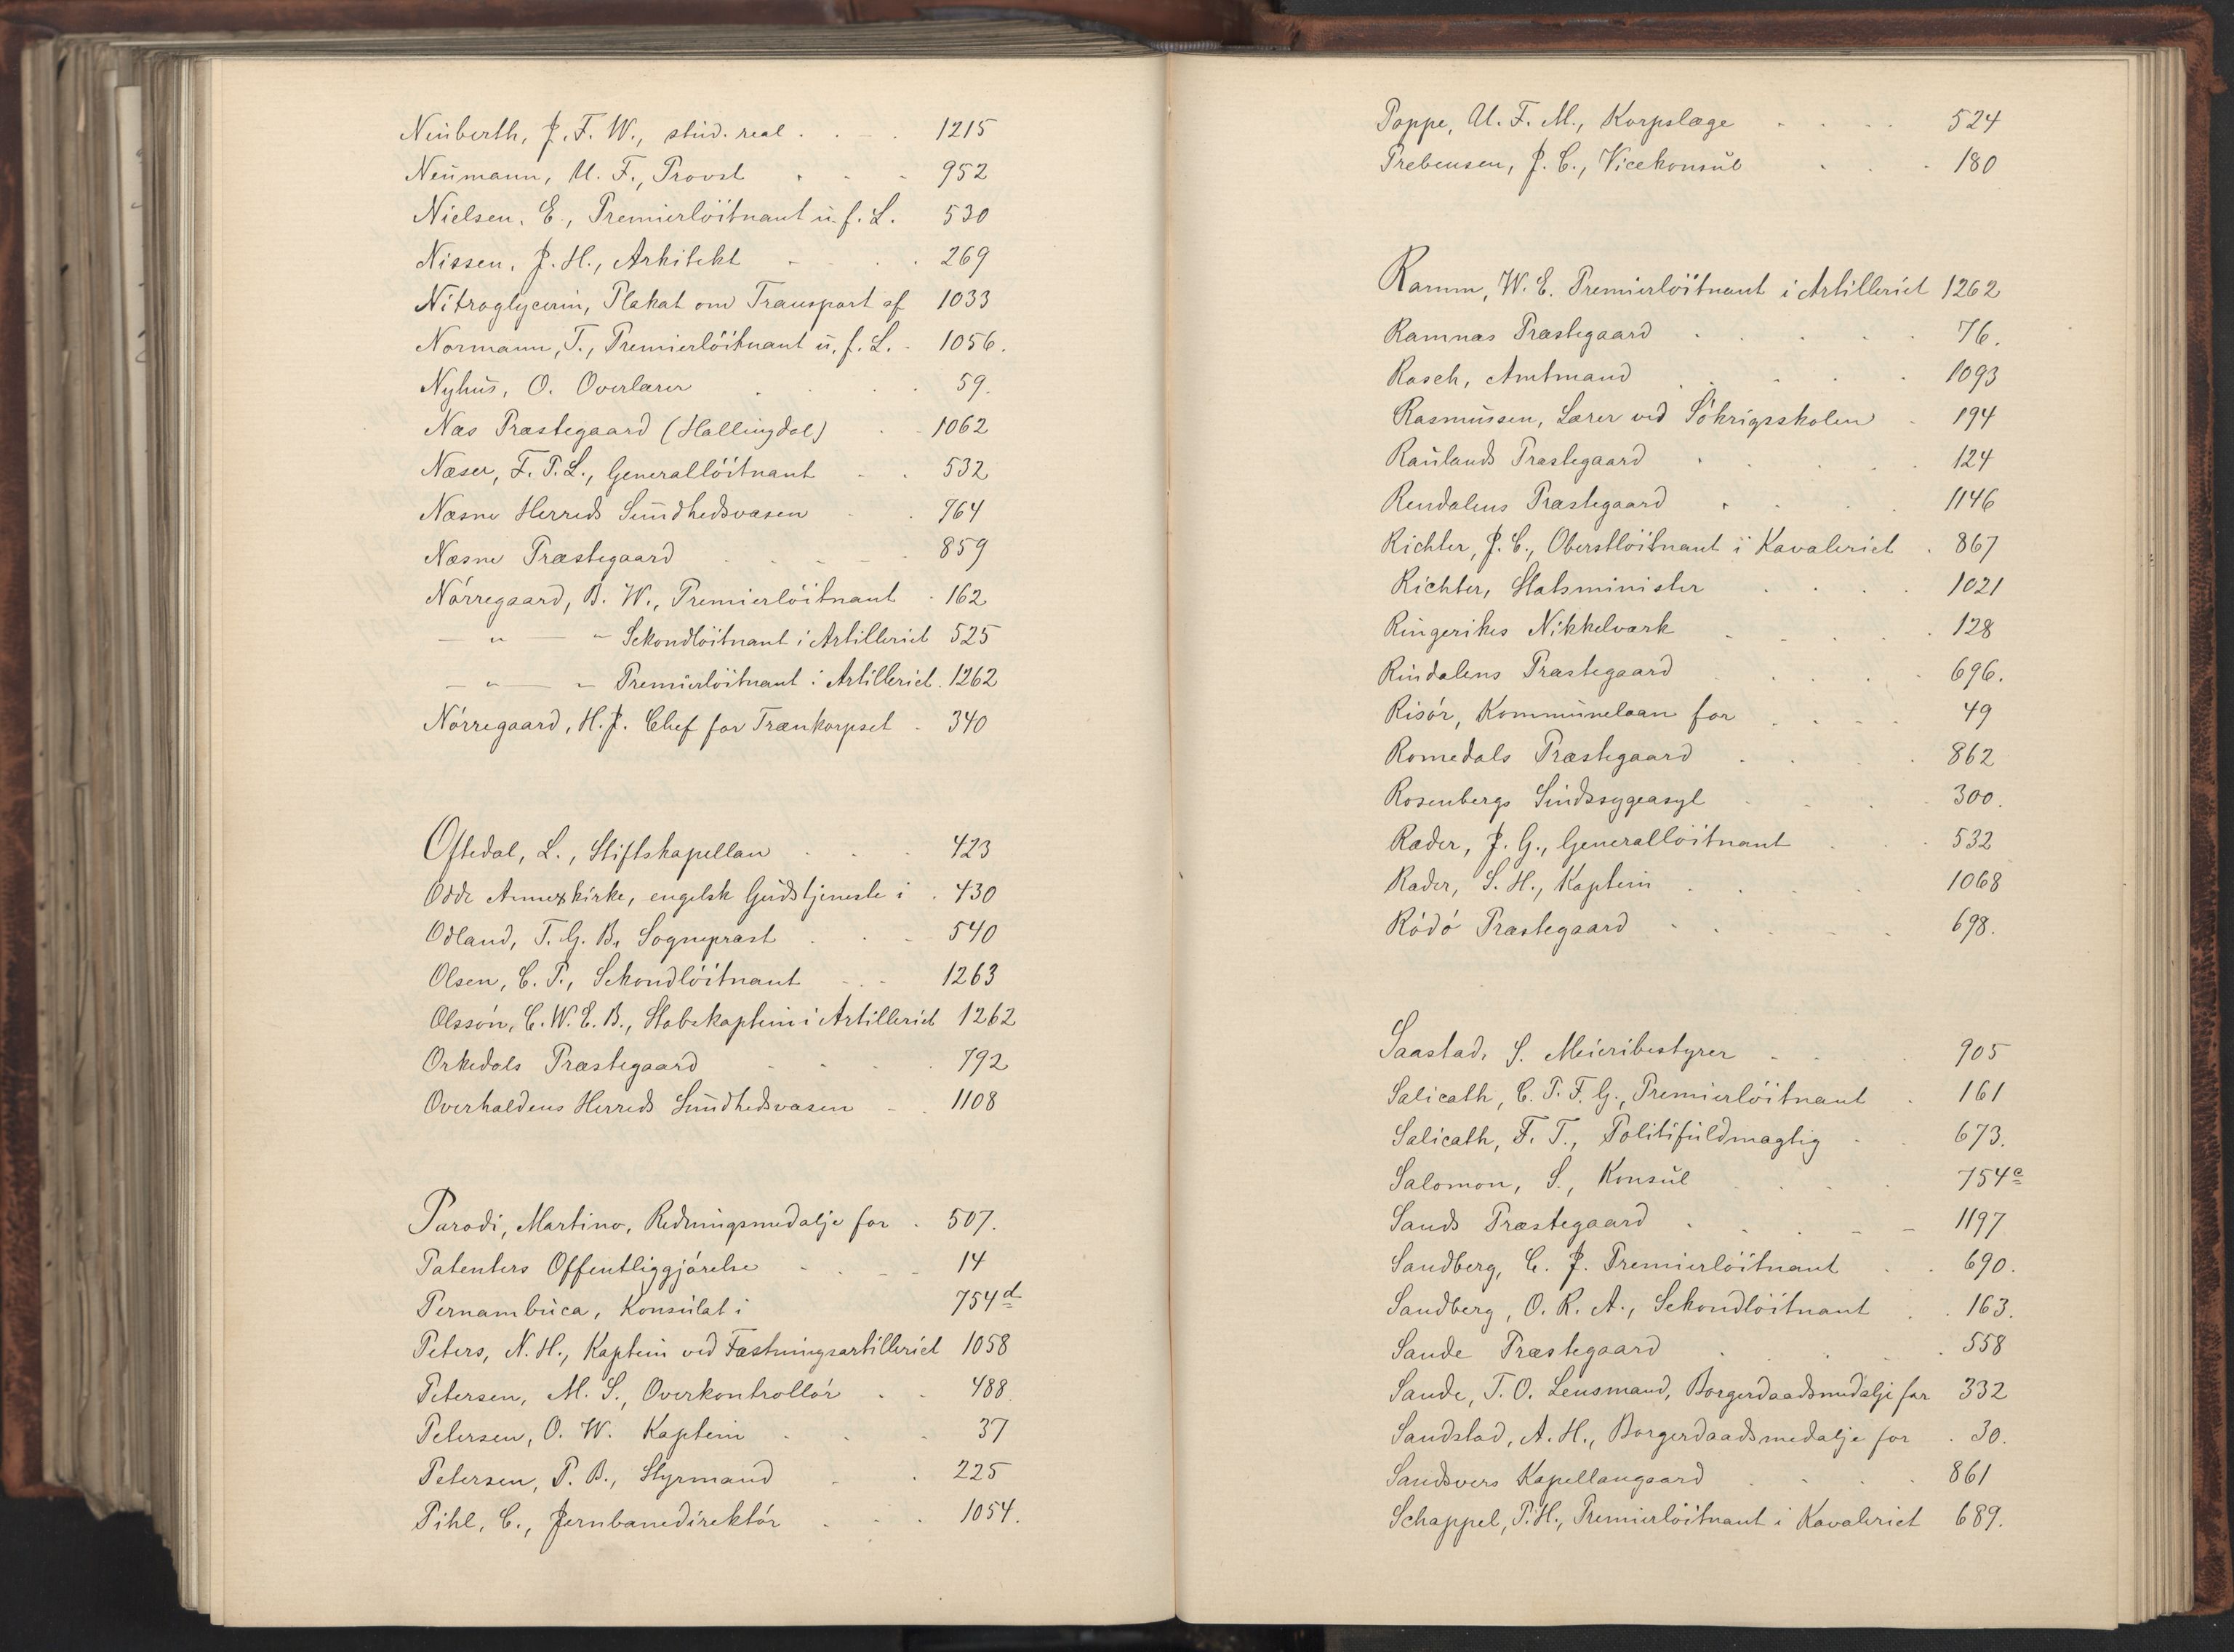 Neuberth, J. F. W., stud. real . . . 1215
Neumann, U. F., Provst . . . 952
Nielsen, E., Premierlöitnant u. f. L. 530
Nissen, J. H., Arkitekt . . . 269
Nitroglycerin, Plakat om Transport af 1033
Normann, T., Premierlöitnant u. f. L. . 1056.
Nyhus, O. Overlærer . . . 59.
Næs Præstegaard (Hallingdal) . . 1062
Næser, F. P. L., Generallöitnant . . 532
Næsne Herreds Sundhedsvæsen . . 764
Næsne Præstegaard . . . . 859
Nørregaard, B. W., Premierlöitnant . 162
— " — " Sekondlöitnant i Artilleriet 525
— " — " Premierlöitnant i Artilleriet. 1262
Nørregaard, H. J. Chef for Trænkorpset . 340
Oftedal, L., Stiftskapellan . . . 423
Odde Annexkirke, engelsk Gudstjeneste i . 430
Odland, T. G. B., Sogneprest . . . 540
Olsen, C. P., Sekondlöitnant . . . 1263
Olssøn, C. W. E. B., Stabskaptein i Artilleriet 1262
Orkedals Præstegaard . . . . 792
Overhaldens Herreds Sundhedsvæsen . . 1108
Parodi, Martino, Redningsmedalje for . 507.
Patenters Offentliggjørelse . . . . 14
Pernambuca, Konsulat i 754d
Peters, N. H., Kaptein ved Fæstningsartilleriet 1058
Petersen, M. S., Overkontrollør . . 488.
Petersen, O. W. Kaptein . . . 37
Petersen, P. B., Styrmand . . 225
Pihl, C., Jernbanedirektør . . . 1054.
Poppe, U. F. M., Korpslæge . . . . 524
Prebensen, J. C., Vicekonsul . . . 180
Ramm, W. E. Premierlöitnant i Artilleriet 1262
Ramnæs Præstegaard . . . . . 76.
Rasch, Amtmand . . . . 1093
Rasmussen, Lærer ved Søkrigsskolen . 194
Raulands Præstegaard . . . . . 124
Rendalens Præstegaard . . . . 1146
Richter, J. C., Oberstlöitnant i Kavaleriet . 867
Richter, Statsminister . . . . 1021
Ringerikes Nikkelværk . . . . . 128
Rindalens Præstegaard . . . . . 696.
Risør, Kommunelaan for . . . . 49
Romedals Præstegaard . . . . 862
Rosenbergs Sindssygeasyl . . . . 300.
Ræder, J. G., Generallöitnant . . . 532
Ræder, S. H., Kaptein . . . . 1068
Rødø Præstegaard . . . . . 698.
Saastad, S. Meieribestyrer . . . 905
Salicath, C. P. F. G., Premierlöitnant . 161
Salicath, F. T., Politifuldmægtig . . 673.
Salomon, S., Konsul . . . . 754c
Sands Præstegaard . . . . . 1197
Sandberg, C. J. Premierlöitnant . . 690.
Sandberg, O. R. A., Sekondlöitnant . . 163.
Sande Præstegaard . . . . 558
Sande, T. O. Lensmand, Borgerdaadsmedalje for 332
Sandstad, A. H., Borgerdaadsmedalje for . 30.
Sandsvers Kapellangaard . . . . 861
Schappel, P. H., Premierlöitnant i Kavaleriet 689.